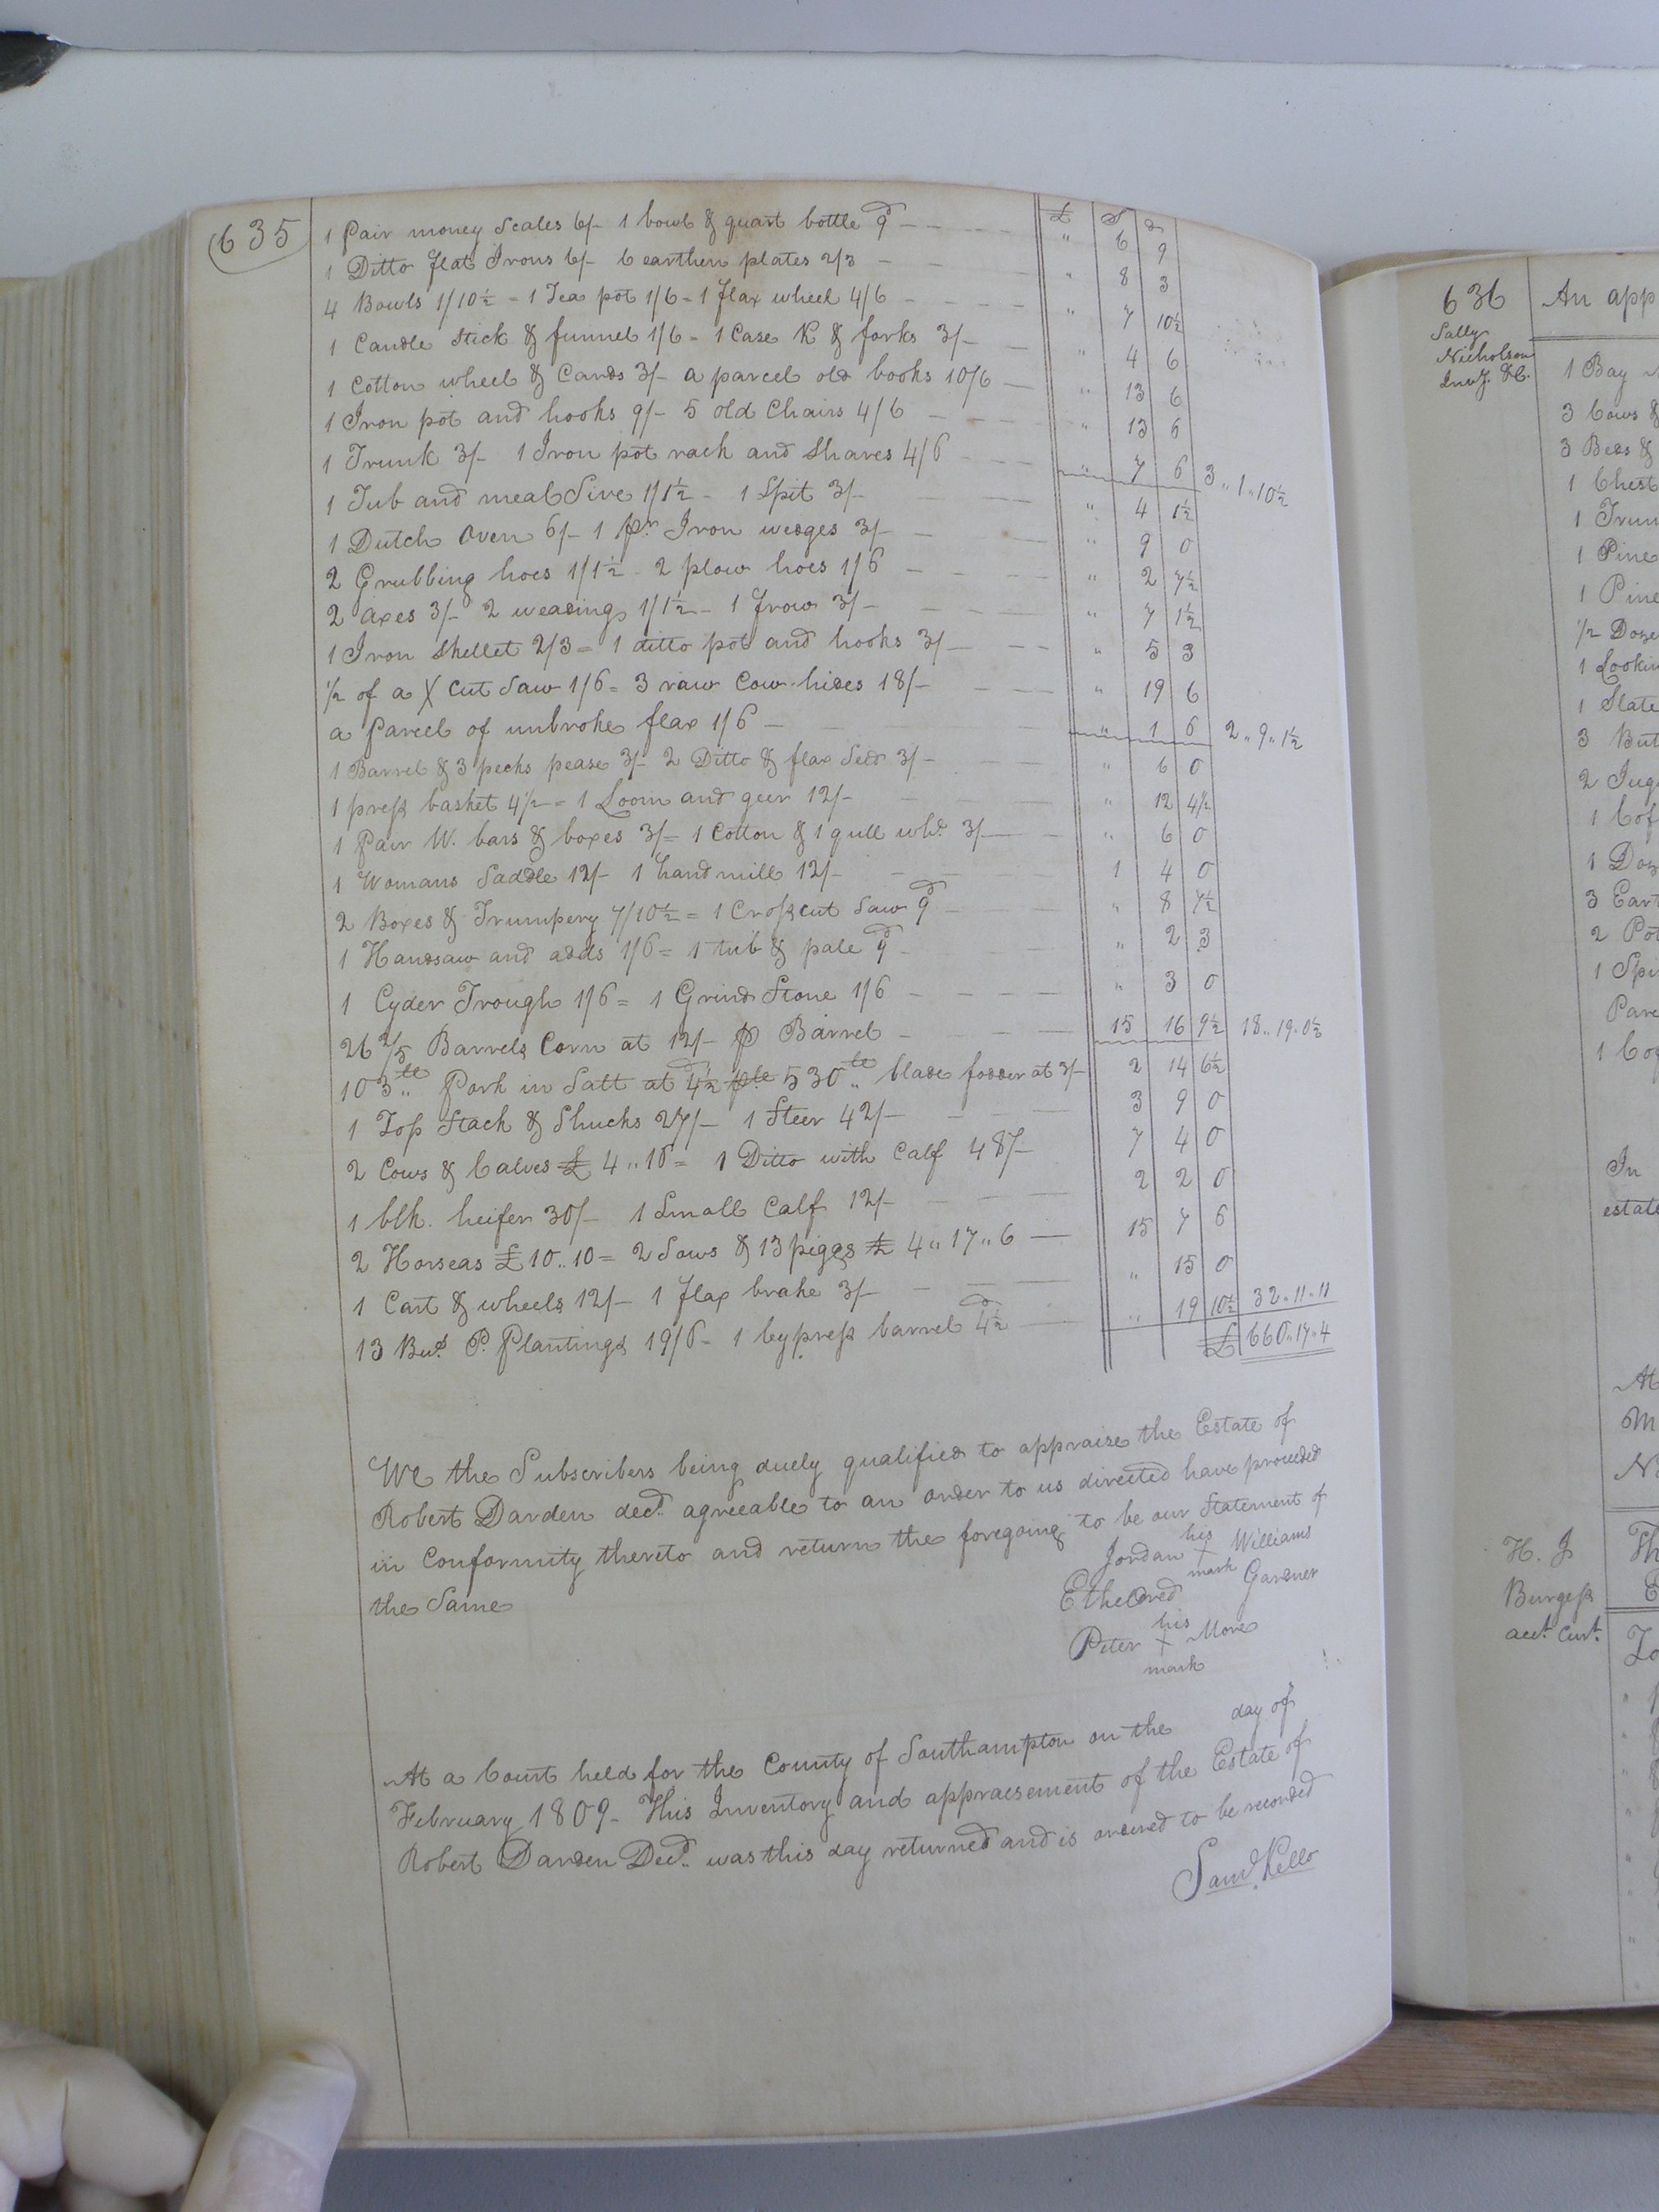 635
£ S d
1 Pair money Scales 6/- 1 bowl & quart bottle 9d " 6 9
1 Ditto flat Irons 6/- 6 earthen plates 2/3 " 8 3
4 Bowls 1/10½ = 1 Tea pot 1/6 = 1 flax wheel 4/6 " 7 10½
1 Candle Stick & funnel 1/6 = 1 Case K & forks 3/- " 4 6
1 Cotton wheel & Cards 3/- a parcel old books 10/6 " 13 6
1 Iron pot and hooks 9/- 5 old Chairs 4/6 " 13 6
1 Trunk 3/- 1 Iron pot rack and Shares 4/6 " 7 6 3 " 1 " 10½
1 Tub and meal Sive 1/1½ - 1 Spit 3/- " 4 1½
1 Dutch Oven 6/- 1 pr. Iron wedges 3/- " 9 0
2 Grubbing hoes 1/1½ - 2 plow hoes 1/6 " 2 7½
2 axes 3/- 2 weading 1/1½ - 1 frow 3/- " 7 1½
1 Iron Skellet 2/3 = 1 ditto pot and hooks 3/- " 5 3
½ of a X Cut Saw 1/6 = 3 raw Cow hides 18/- " 19 6
a Parcel of unbroke flax 1/6 " 1 6 2 " 9 " 1½
1 Barrel & 3 pecks pease 3/- 2 Ditto & flax Seed 3/- " 6 0
1 press basket 4½ = 1 Loom and geer 12/- " 12 4½
1 Pair W. bars & boxes 3/- = 1 Cotton & 1 quill whl. 3/- " 6 0
1 Womans Saddle 12/- 1 hand mill 12/- 1 4 0
2 Boxes & Trumpery 7/10½ = 1 Crosscut Saw 9d " 8 7½
1 Handsaw and adds 1/6 = 1 tub & pale 9d " 2 3
1 Cyder Trough 1/6 = 1 Grind Stone 1/6 " 3 0
26 2/5 Barrels Corn at 12/- p Barrel 15 16 9½ 18 " 19 " 0½
103 lb " Pork in Salt at 4½d p lb 530 lb " blade fodder at 3/- 2 14 6½
1 Top Stack & Shucks 27/- 1 Steer 42/- 3 9 0
2 Cows & Calves £ 4 " 16 = 1 Ditto with Calf 48/- 7 4 0
1 blk. heifer 30/- 1 Small Calf 12/- 2 2 0
2 Horseas £ 10 " 10 = 2 Sows & 13 piggs £ 4 " 17 " 6 15 7 6
1 Cart & wheels 12/- 1 flax brake 3/- " 15 0
13 Bus. P. Plantings 19/6 - 1 Cypress barrel 4½d " 19 10½ 32 " 11 " 11
£ 660 " 17 " 4
We the Subscribers being duely qualified to appraise the Estate of
Robert Darden decd. agreeable to an order to us directed have proceeded
in Conformity thereto and return the foregoing to be our Statement of
the Same
his
Jordan X Williams
mark
Etheldred Gardner
his
Peter X More
mark
At a Court held for the County of Southampton on the day of
February 1809 - This Inventory and appraesement of the Estate of
Robert Darden Decd. was this day returned and is ordered to be recorded
Saml. Kello
636
Sally
Nicholson
Invy. &c.
An app
1 Bay
3 Cows &
3 Beds &
1 Chest
1 Trun
1 Pine
1 Pine
½ Doze
1 Lookin
1 Slate
3 But
2 Jugs
1 Cof
1 Doz
3 Eart
2 Pot
1 Spi
Parc
1 Co
In
estate
At
M
No
H. J
Burgess
acct. Curt.
Th
E
To